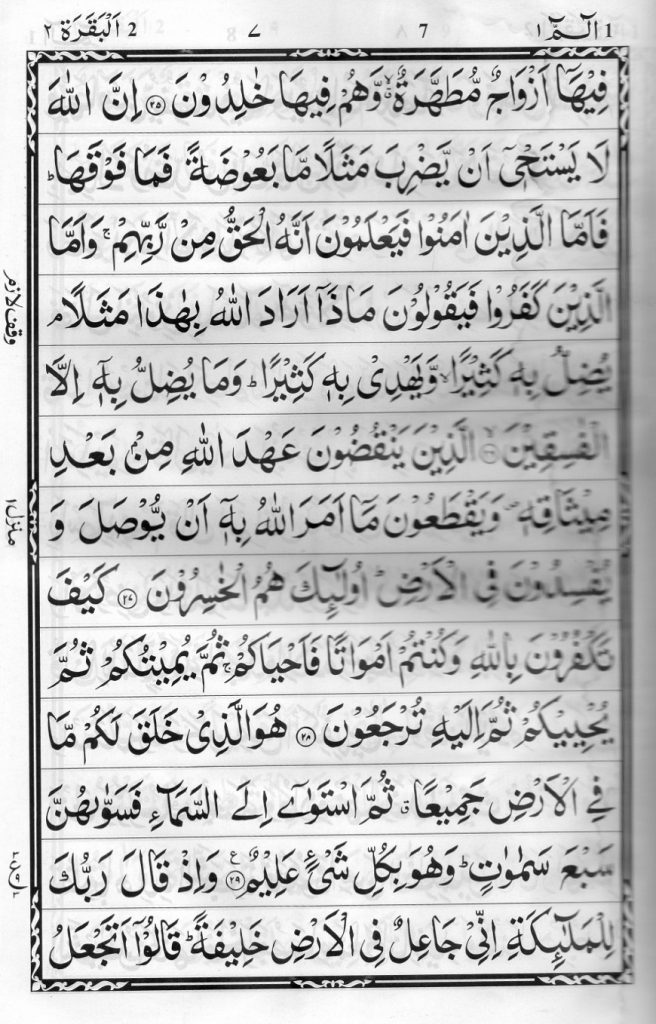 1 الٓـمّٓ ١ 7 ٧ 2 اَلْبَقَرَة ٢
فِيْهَاۤ اَزْوَاجٌ مُّطَهَّرَةٌ ۙ وَّهُمْ فِيْهَا خٰلِدُوْنَ ۝٢٥ اِنَّ اللّٰهَ
لَا يَسْتَحْيٖۤ اَنْ يَّضْرِبَ مَثَلًا مَّا بَعُوْضَةً فَمَا فَوْقَهَا ؕ
فَاَمَّا الَّذِيْنَ اٰمَنُوْا فَيَعْلَمُوْنَ اَنَّهُ الْحَقُّ مِنْ رَّبِّهِمْ ۚ وَاَمَّا
الَّذِيْنَ كَفَرُوْا فَيَقُوْلُوْنَ مَاذَاۤ اَرَادَ اللّٰهُ بِهٰذَا مَثَلًا ۘ
يُضِلُّ بِهٖ كَثِيْرًا ۙ وَّيَهْدِيْ بِهٖ كَثِيْرًا ؕ وَمَا يُضِلُّ بِهٖۤ اِلَّا
الْفٰسِقِيْنَ ۝٢٦ۙ الَّذِيْنَ يَنْقُضُوْنَ عَهْدَ اللّٰهِ مِنْۢ بَعْدِ
مِيْثَاقِهٖ ۪ وَيَقْطَعُوْنَ مَاۤ اَمَرَ اللّٰهُ بِهٖۤ اَنْ يُّوْصَلَ وَ
يُفْسِدُوْنَ فِي الْاَرْضِ ؕ اُولٰٓئِكَ هُمُ الْخٰسِرُوْنَ ۝٢٧ كَيْفَ
تَكْفُرُوْنَ بِاللّٰهِ وَكُنْتُمْ اَمْوَاتًا فَاَحْيَاكُمْ ۚ ثُمَّ يُمِيْتُكُمْ ثُمَّ
يُحْيِيْكُمْ ثُمَّ اِلَيْهِ تُرْجَعُوْنَ ۝٢٨ هُوَ الَّذِيْ خَلَقَ لَكُمْ مَّا
فِي الْاَرْضِ جَمِيْعًا ۗ ثُمَّ اسْتَوٰۤى اِلَى السَّمَآءِ فَسَوّٰىهُنَّ
سَبْعَ سَمٰوٰتٍ ؕ وَهُوَ بِكُلِّ شَيْءٍ عَلِيْمٌ ۝٢٩ ع وَاِذْ قَالَ رَبُّكَ
لِلْمَلٰٓئِكَةِ اِنِّيْ جَاعِلٌ فِي الْاَرْضِ خَلِيْفَةً ؕ قَالُوْۤا اَتَجْعَلُ
وقف لازم
منزل ١